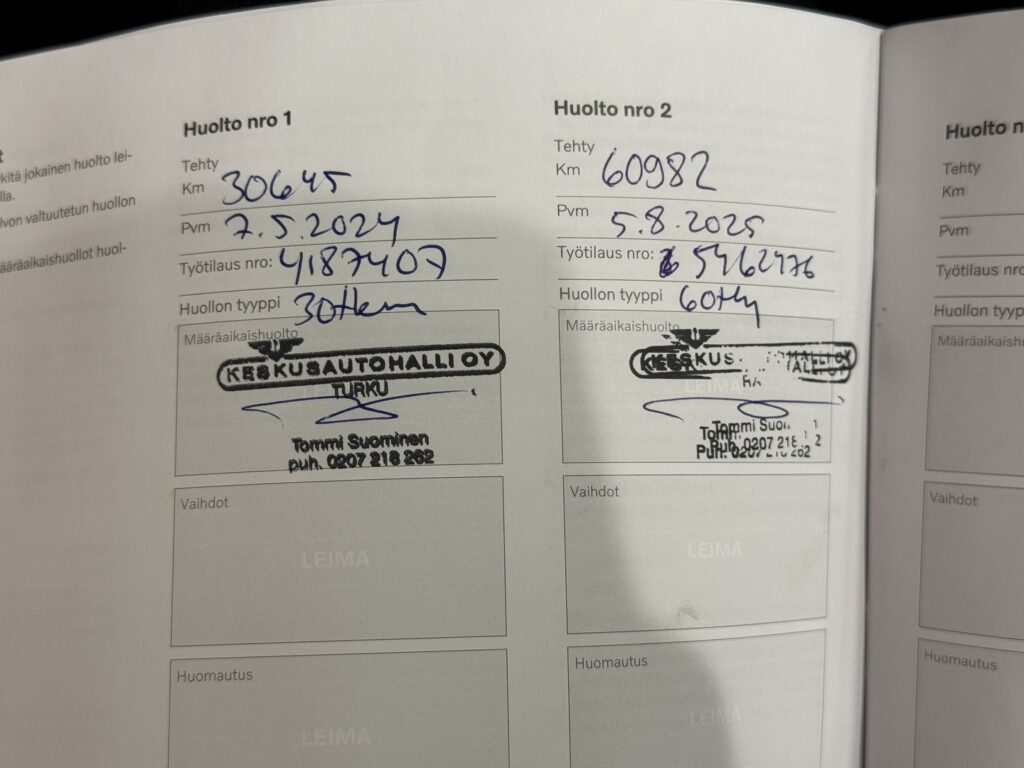 kitä jokainen huolto lei-
lla.
lvon valtuutetun huollon
ääräaikaishuollot huol-
Huolto nro 1
Tehty
Km 30645
Pvm 7.5.2024
Työtilaus nro: 4187407
Huollon tyyppi 30tkm
Määräaikaishuolto
KESKUSAUTOHALLI OY
TURKU
Tommi Suominen
puh. 0207 218 262
Vaihdot
LEIMA
Huomautus
LEIMA
Huolto nro 2
Tehty
Km 60982
Pvm 5.8.2025
Työtilaus nro: 5462476
Huollon tyyppi
Määräaikaishuolto
KESKUS
Tommi
Puh. 0207
Vaihdot
LEIMA
Huomautus
LEIMA
Huolto n
Tehty
Km
Pvm
Työtilaus nro
Huollon tyypp
Määräaikaish
Vaihdot
Huomautus